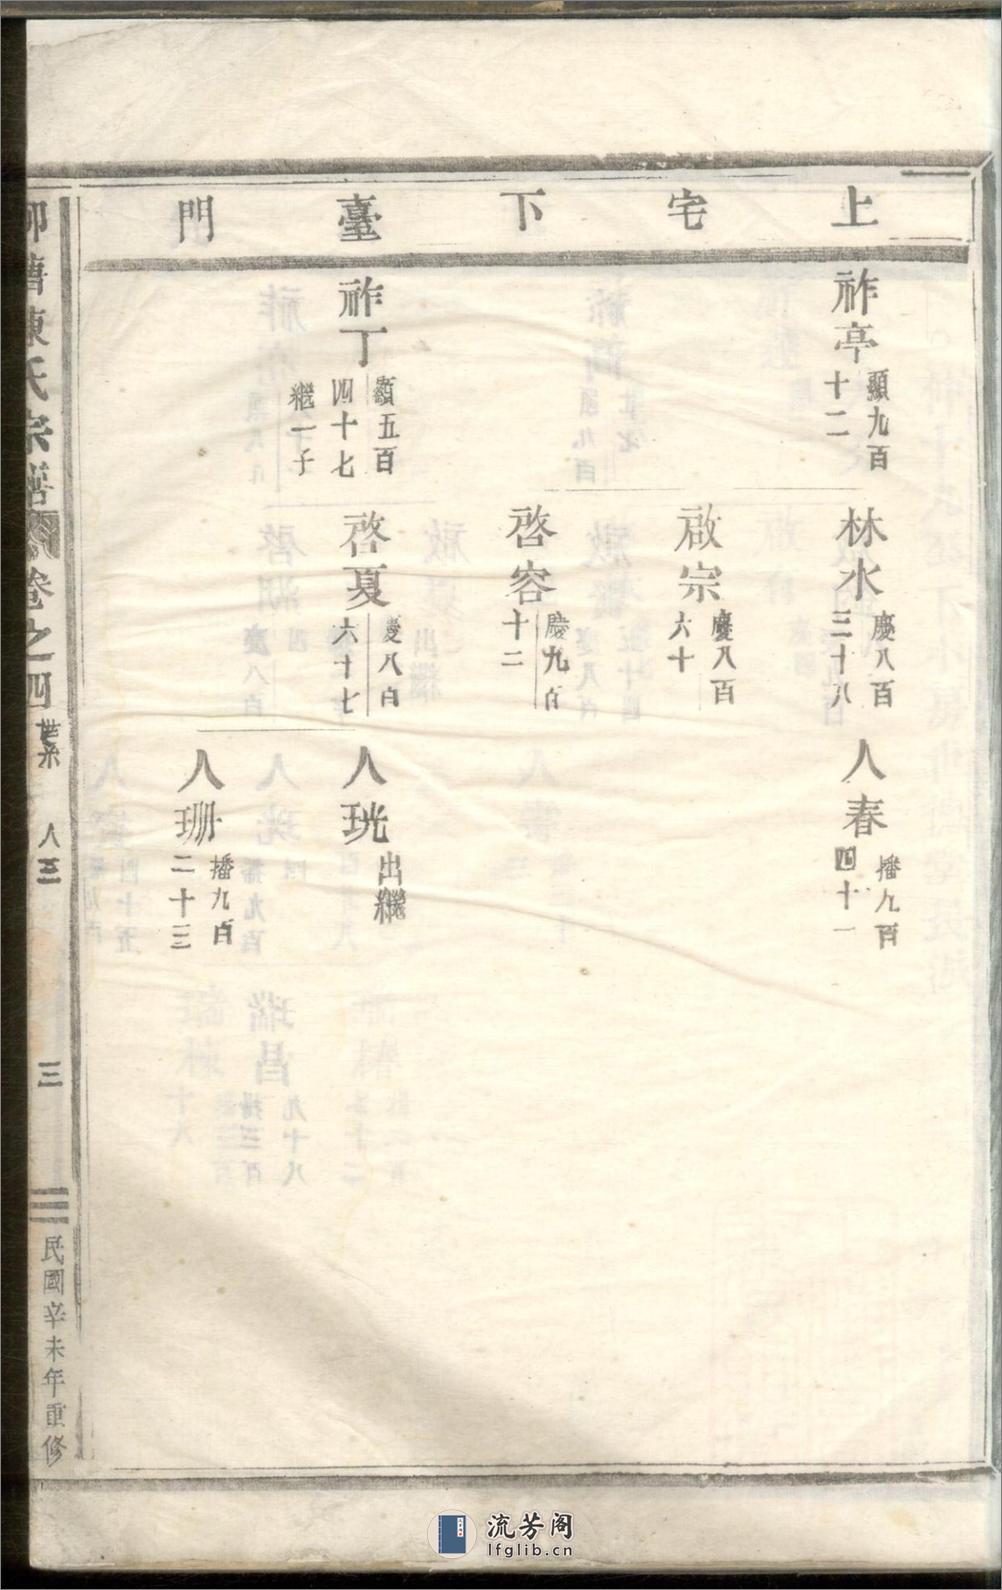 上宅下臺門
祚亭
顯九百
十二
林水
慶八百
三十八
人春
播九百
四十一
啟宗
慶八百
六十
啓容
慶九百
十二
祚丁
顯五百
四十七
繼一子
啓夏
慶八百
六十七
人珖
出繼
人珊
播九百
二十三
陳氏宗譜
卷之四
世系
人三
三
民國辛未年重修
流芳阁
lfglib.cn